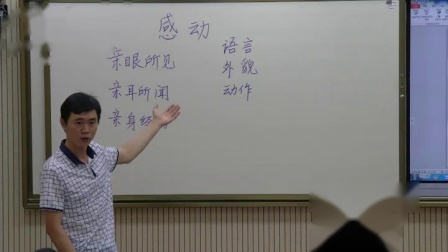 感动
亲眼所见
亲耳所闻
亲身经
语言
外貌
动作